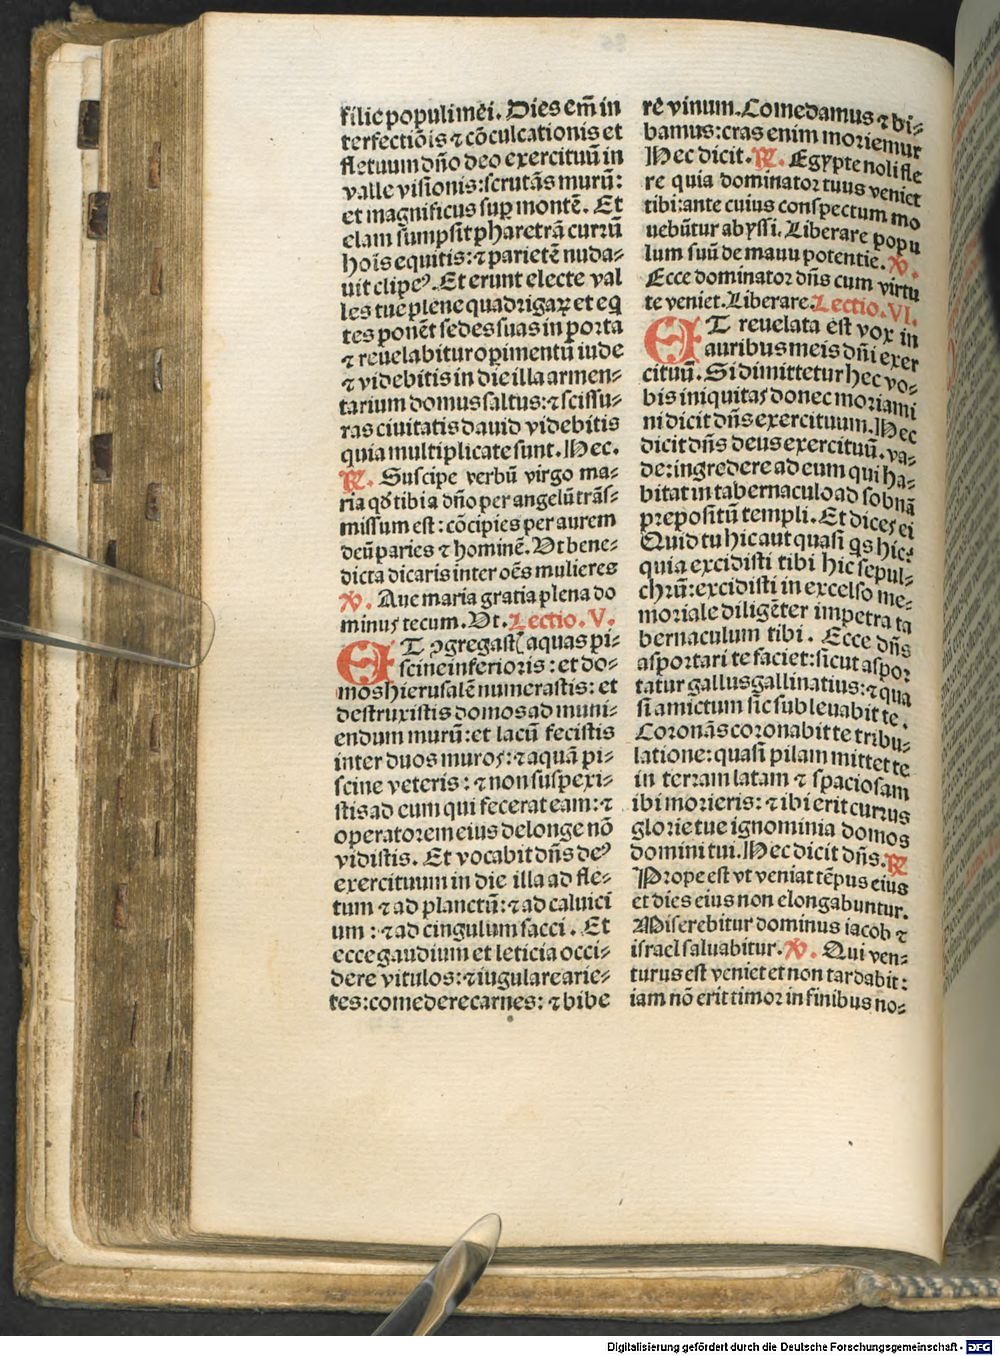 filie populi mei. Dies em̄ in
terfectiōis ⁊ cōculcationis et
fletuum dño deo exercituū in
valle visionis: scrutās murū:
et magnificus sup montē. Et
elam sumpsit pharetrā currū
hoīs equitis: ⁊ parietē nuda⸗
uit clipeꝰ. Et erunt electe val
les tue plene quadrigaꝝ et eq
tes ponēt sedes suas in porta
⁊ reuelabitur opimentū iude
⁊ videbitis in die illa armen⸗
tarium domus saltus: ⁊ scissu⸗
ras ciuitatis dauid videbitis
quia multiplicate sunt. Hec.
℟. Suscipe verbū virgo ma⸗
ria qð tibi a dño per angelū trās⸗
missum est: cōcipies per aurem
deū paries ⁊ hominē. Vt bene⸗
dicta dicaris inter oēs mulieres
℣. Aue maria gratia plena do
minus tecum. Vt. Lectio. V.
ET ꝯgregast̄ aquas pi⸗
scine inferioris: et do⸗
mos hierusalē numerastis: et
destruxistis domos ad muni⸗
endum murū: et lacū fecistis
inter duos muros: ⁊ aquā pi⸗
scine veteris: ⁊ non suspexi⸗
stis ad eum qui fecerat eam: ⁊
operatorem eius de longe nō
vidistis. Et vocabit dñs deꝰ
exercituum in die illa ad fle⸗
tum ⁊ ad planctū: ⁊ ad caluici
um: ⁊ ad cingulum sacci. Et
ecce gaudium et leticia occi⸗
dere vitulos: ⁊ iugulare arie⸗
tes: comedere carnes: ⁊ bibe
rē vinum. Comedamus ⁊ bi⸗
bamus: cras enim moriemur
Hec dicit. ℟. Egypte noli fle
re quia dominator tuus veniet
tibi: ante cuius conspectum mo
uebūtur abyssi. Liberare popu
lum suū de manu potentie. ℣.
Ecce dominator dñs cum virtu
te veniet. Liberare. Lectio. VI.
ET reuelata est vox in
auribus meis dñi exer
cituū. Si dimittetur hec vo⸗
bis iniquitas donec moriami
ni dicit dñs exercituum. Hec
dicit dñs deus exercituū. va⸗
de: ingredere ad eum qui ha⸗
bitat in tabernaculo ad sobnā
prepositū templi. Et dices ei
Quid tu hic aut quasi qs hic:
quia excidisti tibi hic sepul⸗
chrū: excidisti in excelso me⸗
moriale diligēter impetra ta
bernaculum tibi. Ecce dñs
asportari te faciet: sicut aspor
tatur gallus gallinatius: ⁊ qua
si amictum sic subleuabit te.
Coronās coronabit te tribu⸗
latione: quasi pilam mittet te
in terram latam ⁊ spaciosam
ibi morieris: ⁊ ibi erit currus
glorie tue ignominia domos
domini tui. Hec dicit dñs. ℟
Prope est vt veniat tēpus eius
et dies eius non elongabuntur.
Miserebitur dominus iacob ⁊
israel saluabitur. ℣. Qui ven⸗
turus est veniet et non tardabit:
iam nō erit timor in finibus no⸗
Digitalisierung gefördert durch die Deutsche Forschungsgemeinschaft - DFG